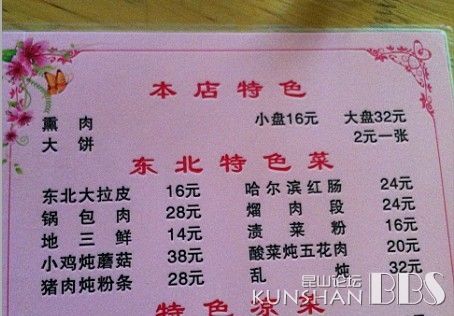 本店特色
熏肉 小盘16元 大盘32元
大饼 2元一张
东北特色菜
东北大拉皮 16元 哈尔滨红肠 24元
锅包肉 28元 熘肉段 24元
地三鲜 14元 渍菜粉 16元
小鸡炖蘑菇 38元 酸菜炖五花肉 20元
猪肉炖粉条 28元 乱炖 32元
特色凉菜
昆山论坛
KUNSHAN BBS